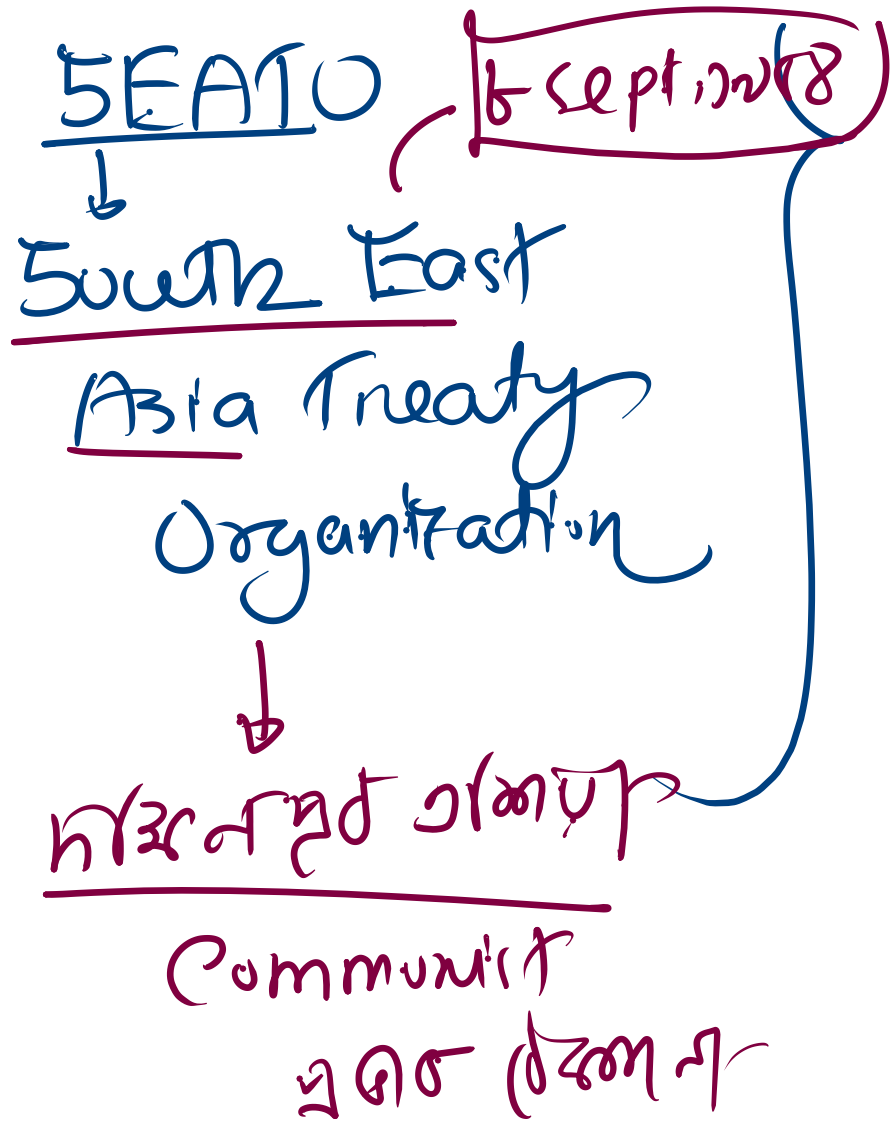 SEATO
৮ Sept, ১৯৫৪
South East
Asia Treaty
Organization
দক্ষিণপূর্ব এশিয়া
Communist
প্রভাব ঠেকানো